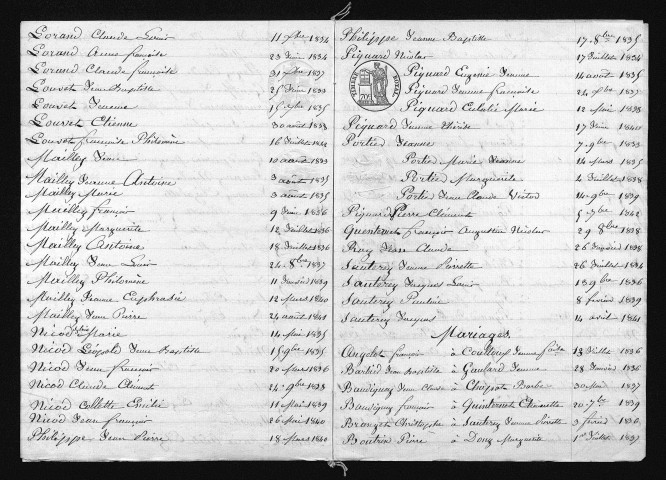 Lorand Claude Louis 11 9bre 1834
Lorand Anne françoise 23 Juin 1834
Lorand Claude françoise 31 1837
Louvet Jean Baptiste 25 1833
Louvet Jeanne 15 1835
Louvet Etienne 30 août 1838
Louvet françoise Philomène 16 Juillet 1841
Mailley 10 août 1833
Mailley Jeanne Antoine 3 août 1835
Mailley Marie 3 août 1835
Mailley françois 9 Juin 1836
Mailley Marguerite 12 Juillet 1836
Mailley Antoine 18 Juillet 1836
Mailley Jean Louis 24 8bre 1837
Mailley Philomène 11 Janvier 1839
Mailley Jeanne Euphrasie 12 Mars 1840
Mailley Jean Pierre 24 août 1841
Nicod Marie 14 Mai 1835
Nicod Léopold Jean Baptiste 15 9bre 1835
Nicod Jean françois 20 Mars 1836
Nicod Claude Clément 24 9bre 1838
Nicod Collette Emilie 11 Mai 1839
Nicod Jean françois 26 Mai 1840
Philippe Jean Pierre 18 Mars 1840
Philippe Jeanne Baptiste 17 8bre 1835
Piquard Nicolas 17 Juillet 1834
Piquard Eugénie Jeanne 14 août 1835
Piquard Jeanne françoise 24 9bre 1837
Piquard Marie 12 Mai 1838
Piquard Jeanne Thérèse 17 Juin 1841
Portier Jeanne 7 9bre 1833
Portier Marie Jeanne 14 Mars 1835
Portier Marguerite 4 Juillet 1838
Portier Jean Claude Victor 14 9bre 1839
Piquard Pierre Clément 5 7bre 1842
Quentenet françois Augustin Nicolas 29 8bre 1838
Roy Jean Claude 26 1838
Sauterey Jeanne Pierrette 26 Juillet 1834
Sauterey Jacques Louis 18 9bre 1836
Sauterey Pauline 8 février 1839
Sauterey Jacques 14 avril 1841
Mariages.
Angelot françois à Jeanne 13 Juillet 1836
Barbier Jean Baptiste à Gaulard Jeanne 28 Janvier 1836
Baudiquey Jean Claude à Chipot Barbe 30 Mai 1837
Baudiquey françois à Quintenet Etiennette 20 7bre 1839
Christophe à Sauterey Jeanne Pierrette 3 février 1836
Boutrin Pierre à Doux Marguerite 1er Juillet 1837